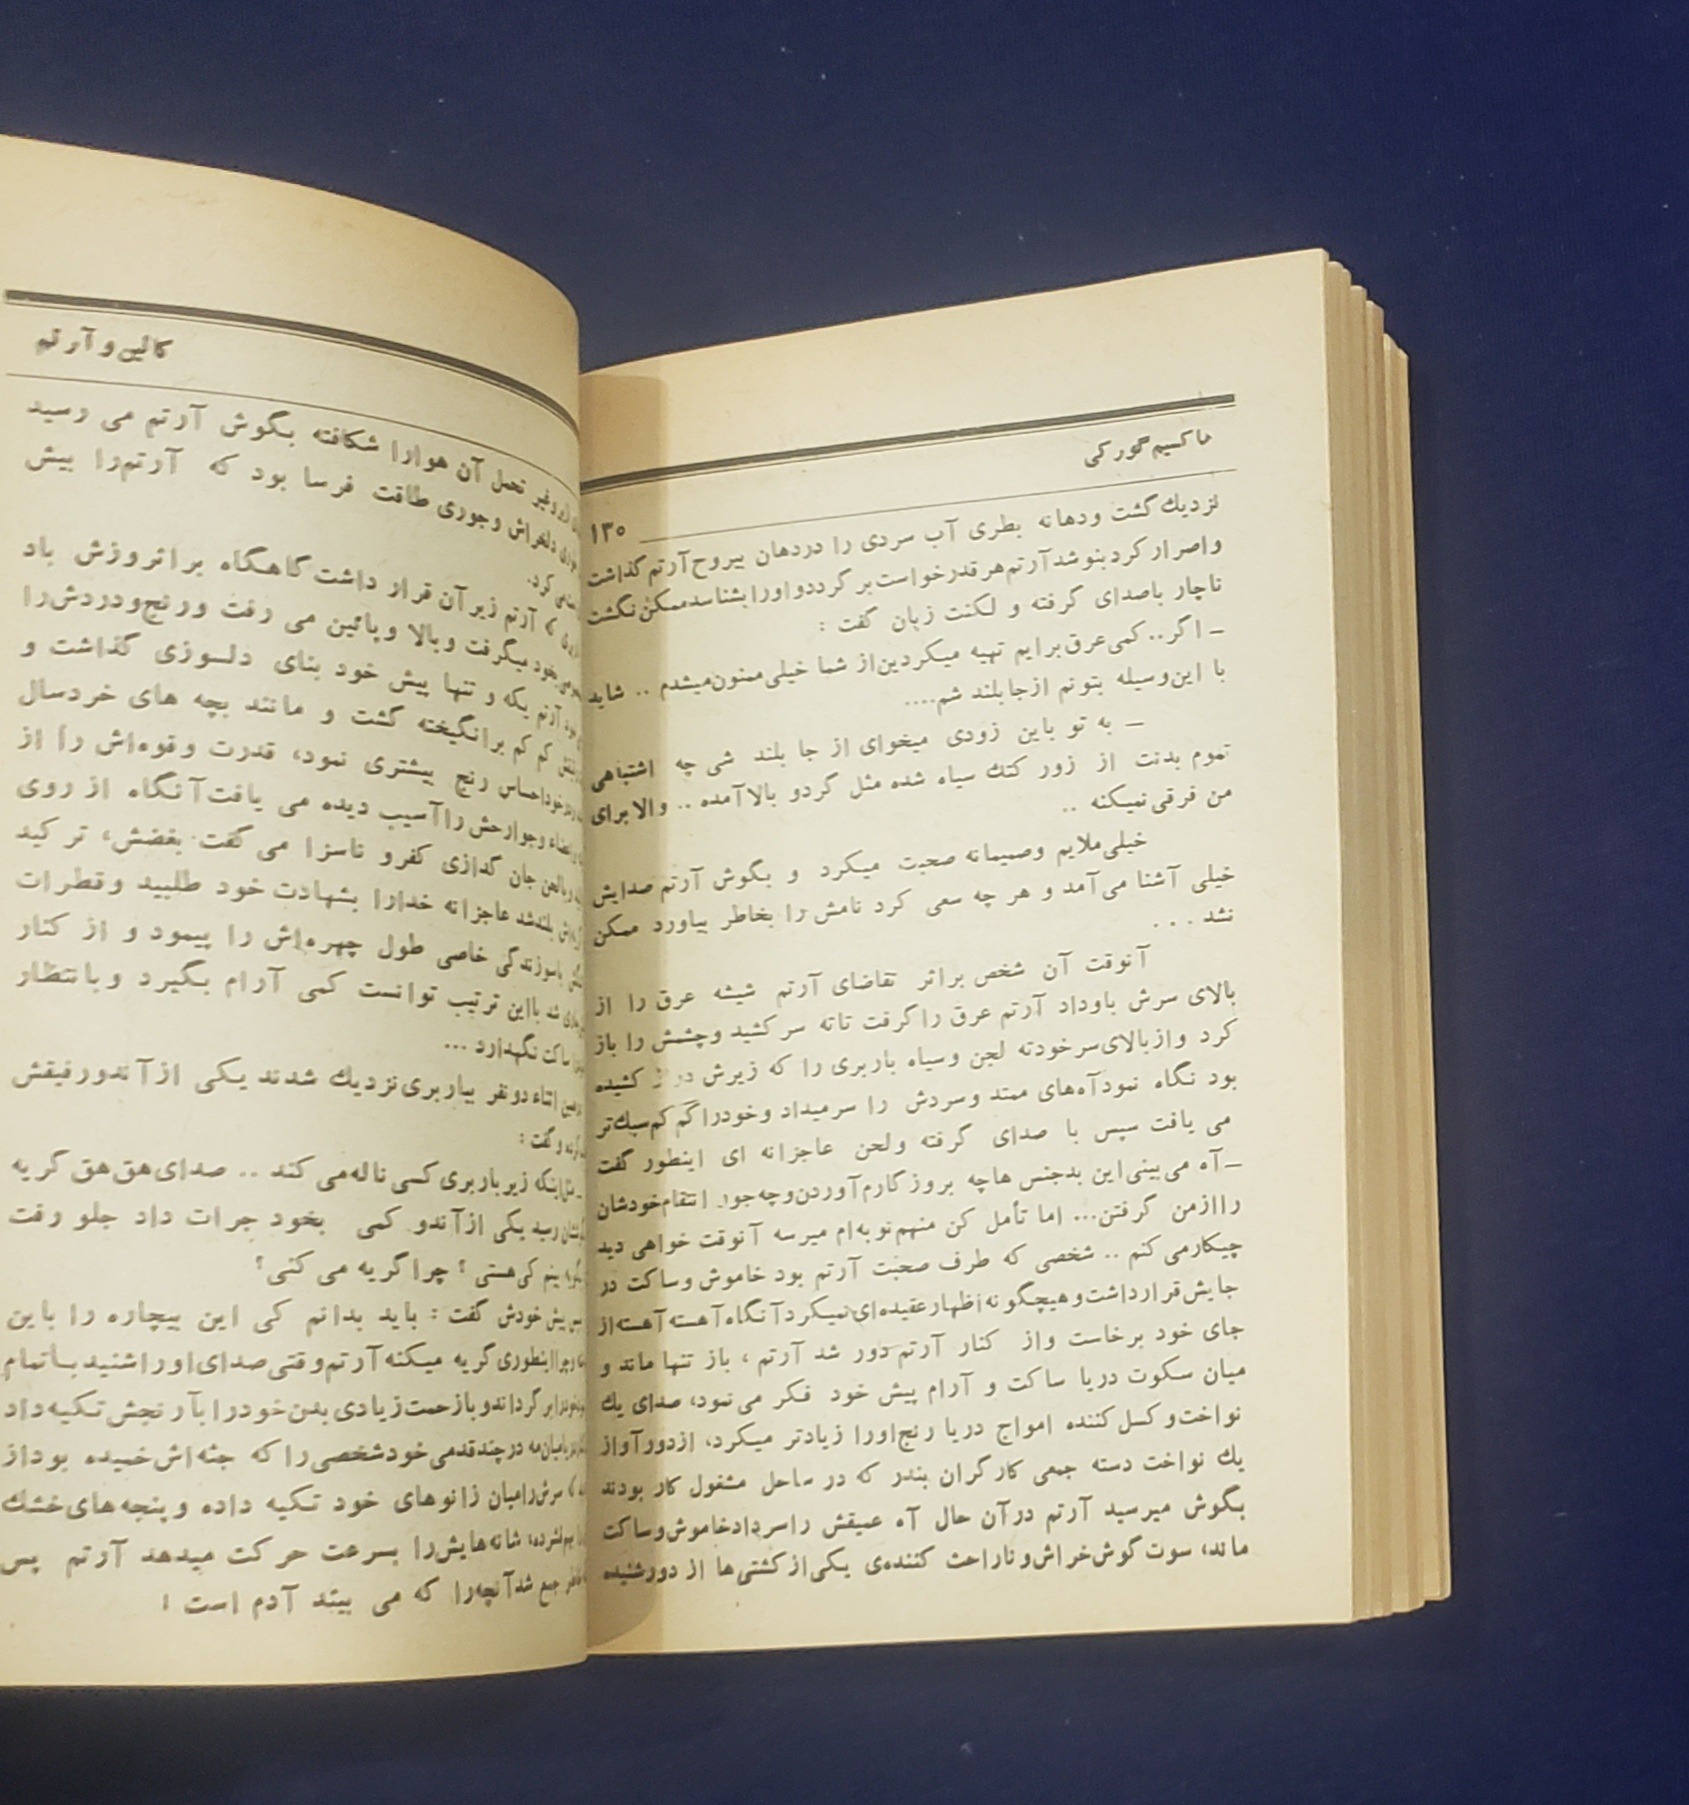 ماکسیم گورکی
۱۳۰
نزدیك گشت ودهانه بطری آب سردی را دردهان بیروح آرتم گذاشت
واصرار کرد بنوشد آرتم هر قدر خواست بر گردد و اورا بشناسد ممکن نگشت
ناچار باصدای گرفته و لکنت زبان گفت :
ـ اگر.. کمی عرق برایم تهیه میکردین از شما خیلی ممنون میشدم .. شاید
با این وسیله بتونم از جا بلند شم....
ـ به تو باین زودی میخوای از جا بلند شی چه اشتباهی
تموم بدنت از زور کتك سیاه شده مثل گردو بالا آمده .. والا برای
من فرقی نمیکنه ..
خیلی ملایم وصمیمانه صحبت میکرد و بگوش آرتم صدایش
خیلی آشنا می آمد و هر چه سعی کرد نامش را بخاطر بیاورد ممکن
نشد . . .
آنوقت آن شخص براثر تقاضای آرتم شیشه عرق را از
بالای سرش باوداد آرتم عرق را گرفت تا ته سر کشید وچشمش را باز
کرد و از بالای سر خودته لجن وسیاه باربری را که زیرش دراز کشیده
بود نگاه نمود آه های ممتد وسردش را سر میداد و خود را کم کم سبك تر
می یافت سپس با صدای گرفته ولحن عاجزانه ای اینطور گفت
ـ آه می بینی این بدجنس هاچه بروز گارم آوردن وچه جور انتقام خودشان
را ازمن گرفتن... اما تأمل کن منهم نوبه ام میرسه آنوقت خواهی دید
چیکار می کنم .. شخصی که طرف صحبت آرتم بود خاموش وساکت در
جایش قرار داشت و هیچگونه اظهار عقیده ای نمیکرد آنگاه آهسته آهسته از
جای خود برخاست واز کنار آرتم دور شد آرتم ، باز تنها ماند و
میان سکوت دریا ساکت و آرام پیش خود فکر می نمود، صدای یك
نواخت و کسل کننده امواج دریا رنج اورا زیادتر میکرد، از دور آواز
یك نواخت دسته جمعی کارگران بندر که در ساحل مشغول کار بودند
بگوش میرسید آرتم در آن حال آه عمیقش را سرداد خاموش و ساکت
ماند، سوت گوش خراش و ناراحت کننده ی یکی از کشتی ها از دور شنیده
کالین و آرتم
تحمل آن هوارا شکافته بگوش آرتم می رسید
دلخراش وجوری طاقت فرسا بود که آرتم را بیش
کرد.
آرتم زیر آن قرار داشت گاهگاه براثر وزش باد
خود میگرفت وبالا وپائین می رفت ورنج و دردش را
آرتم یکه و تنها پیش خود بنای دلسوزی گذاشت و
کم کم برانگیخته گشت و مانند بچه های خردسال
احساس رنج بیشتری نمود، قدرت وقوه اش را از
وجوارحش را آسیب دیده می یافت آنگاه از روی
جان گدازی کفرو ناسزا می گفت بغضش، ترکید
بلند شد عاجزانه خدارا بشهادت خود طلبید وقطرات
سوزندگی خاصی طول چهره اش را پیمود و از کنار
شد بااین ترتیب توانست کمی آرام بگیرد و بانتظار
ساکت نگهدارد ...
اثناء دو نفر بباربری نزدیك شدند یکی از آندو رفیقش
وگفت :
اینکه زیر باربری کسی ناله می کند .. صدای هق هق گریه
رسید یکی از آندو کمی بخود جرات داد جلو رفت
بینم کی هستی ؟ چرا گریه می کنی؟
پیش خودش گفت : باید بدانم کی این بیچاره را باین
اینطوری گریه میکنه آرتم وقتی صدای اورا شنید با تمام
بر گرداند و باز حمت زیادی بدن خود را بآرنجش تکیه داد
در چند قدمی خود شخصی را که جثه اش خمیده بود از
سرش را میان زانوهای خود تکیه داده و پنجه های خشك
شانه هایش را بسرعت حرکت میدهد آرتم پس
جمع شد آنچه را که می بیند آدم است ؛